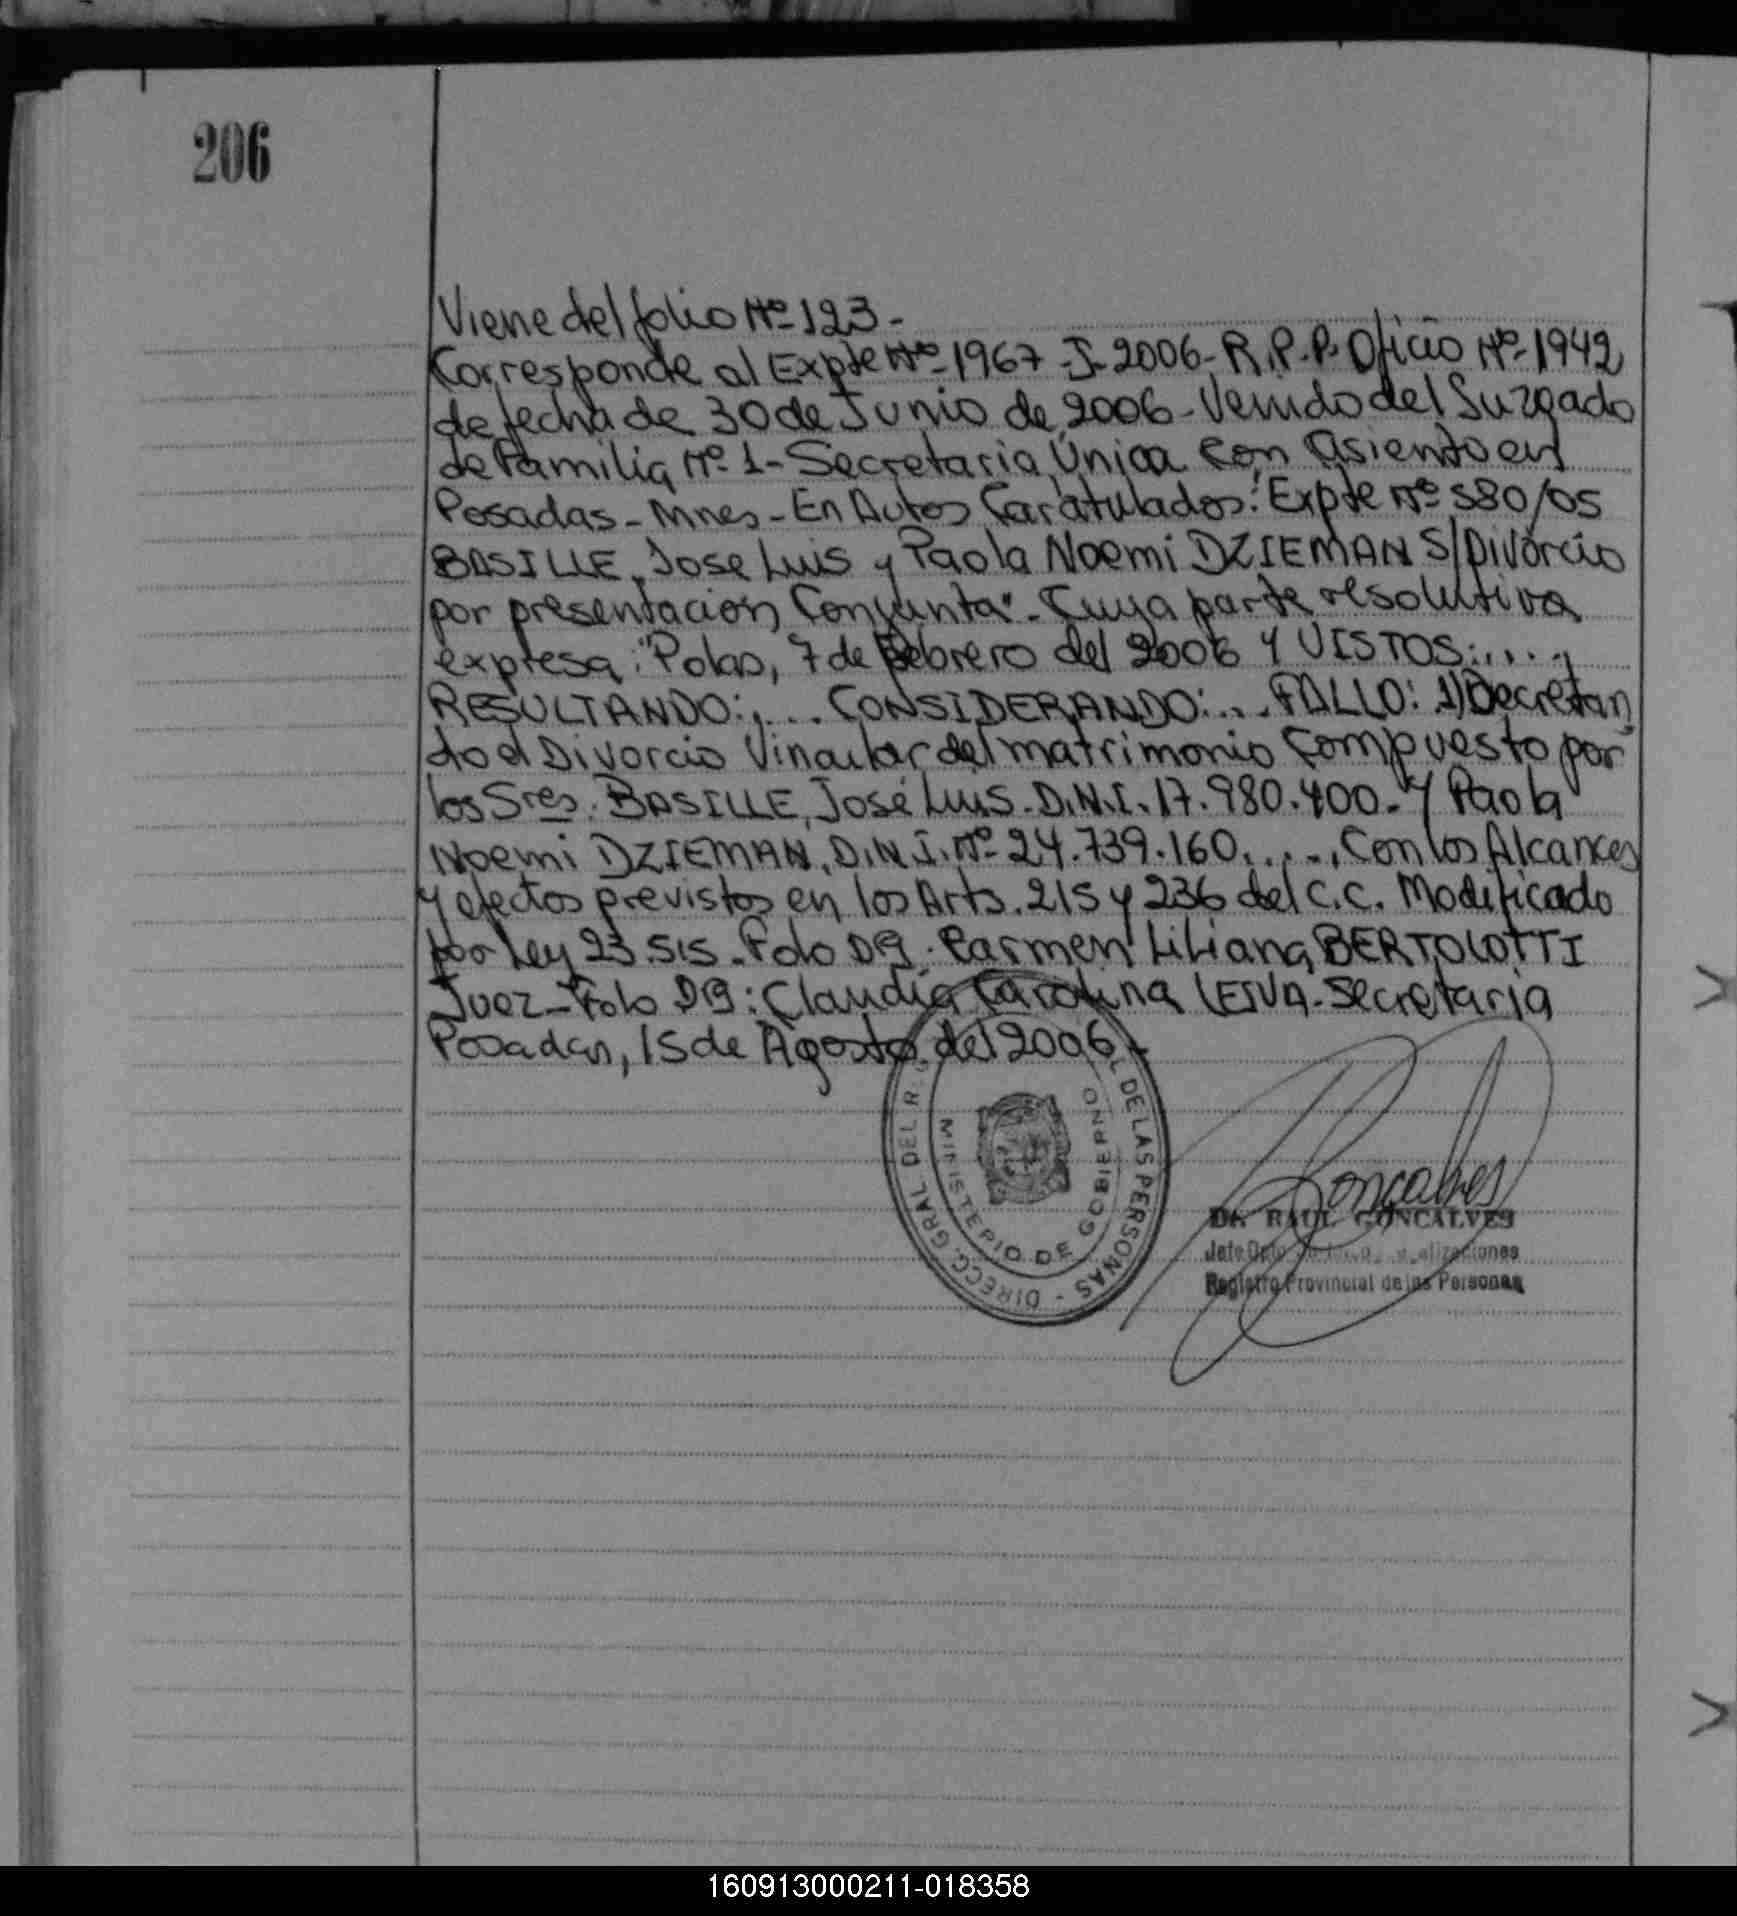 206
Viene del folio Nº 123.-
Corresponde al Expte Nº 1967-J-2006- R.P.P. Oficio Nº 1942
de fecha de 30 de Junio de 2006- Venido del Juzgado
de Familia Nº 1- Secretaria Única con asiento en
Posadas- Mnes- En Autos Caratulados: "Expte Nº 580/05
BASILLE, Jose Luis y Paola Noemi DZIEMAN S/Divorcio
por presentación Conjunta". Cuya parte resolutiva
expresa: "Pdas, 7 de Febrero del 2006 Y VISTOS:....,
RESULTANDO:.... CONSIDERANDO:.... FALLO: 1) Decretan
do el Divorcio Vincular del matrimonio compuesto por
los Sres. BASILLE, José Luis. D.N.I. 17.980.400.- y Paola
Noemi DZIEMAN, D.N.I. Nº 24.739.160....., Con los Alcances
y efectos previstos en los Arts. 215 y 236 del C.C. Modificado
por Ley 23.515.- Fdo Carmen Liliana BERTOLOTTI
Juez- Fdo Claudia Carolina LEIVA- Secretaria
Posadas, 15 de Agosto del 2006.-
DIRECC. GRAL DEL R. DE LAS PERSONAS -
MINISTERIO DE GOBIERNO
Goncalves
Dr. RAUL GONCALVES
Jefe Dpto
Registro Provincial de las Personas
160913000211-018358